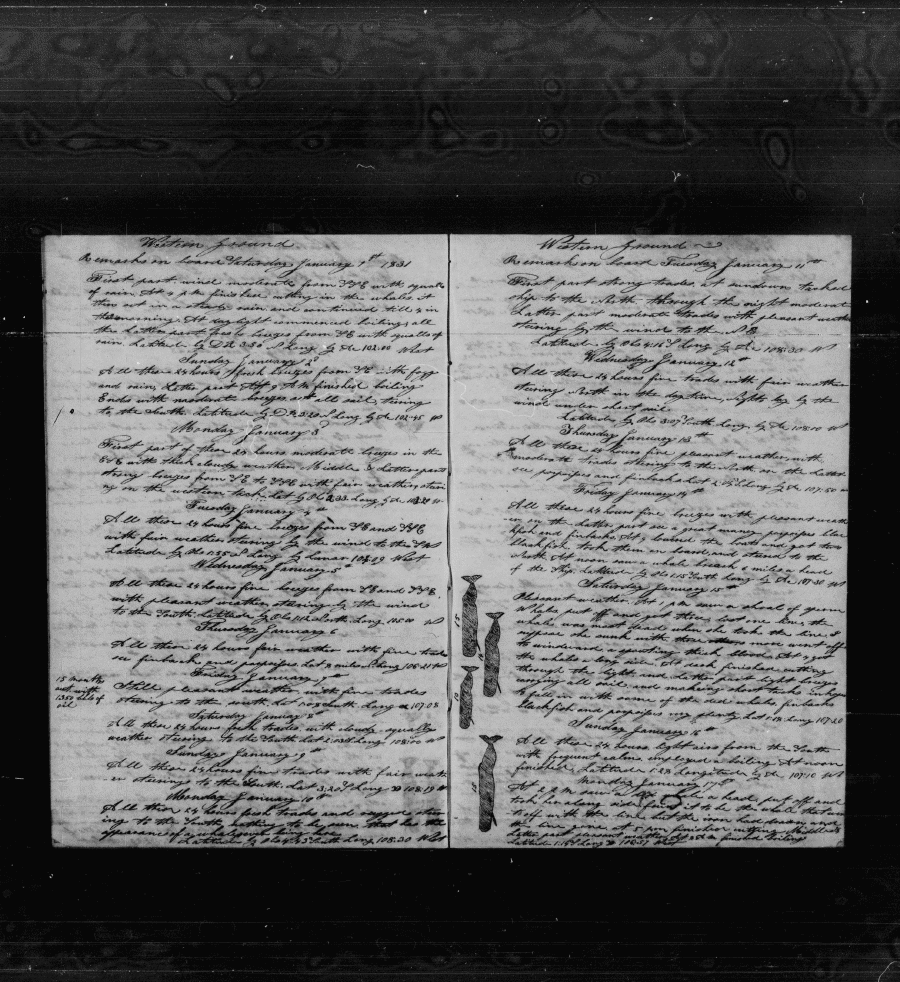 Western Ground
Remarks on board Saturday January 1st 1831
First part wind moderate from with squalls
of rain At 9 P.M. finished cutting in the whales it
then set in a steady rain and continued till 3 in
the morning. At day light commenced boiling all
the latter part fresh breezes from SE with squalls of
rain Latitude by D R 3.30 S Long by Ac 102.00 West
Sunday January 2d
All these 24 hours fresh breezes from SE with fogg
and rain Latter part At 9 A.M. finished boiling
Ends with moderate breezes set all sail, steering
to the South. Latitude by D R 3.20 S Long by Ac 102.45 W
Monday January 3d
First part of these 24 hours moderate breezes in the
with thick cloudy weather Middle & Latter part
strong breezes from SE to with fair weather steeri
ng on the western tack Lat by Ob 2.33 Long by Ac
Tuesday January 4th
All these 24 hours fine breezes from SE and
with fair weather steering by the wind to the
Latitude by Ob 1.35 S Long by lunar 104.19 West
Wednesday January 5th
All these 24 hours fine breezes from SE and
with pleasant weather steering by the wind
to the South. Latitude by Ob South Long 105.00 W
Thursday January 6
All these 24 hours fair weather with fine trades
see finbacks and porpoises Lat 9 miles S Long 106.21 W
Friday January 7th
15 months
out with
1350 bbls of
oil
Still pleasant weather with fine trades
steering to the south. Lat 1.08 South Long 107.08
Saturday January 8th
All these 24 hours fresh trades with cloudy squally
weather steering to the South Lat Long 108.00 W
Sunday January 9th
All these 24 hours fine trades with fair weath
er steering to the South. Lat 3.20 S Long 108.19 W
Monday January 10th
All these 24 hours fresh trades and rugged steer
ing to the South that has the
appearance of a whale ground
Latitude by Ob 4.43 South Long 108.30 West
Western Ground
Remark on board Tuesday January 11th
First part strong trades, at sundown tacked
ship to the North, through the night moderate
Latter part moderate trades with pleasant weather
steering by the wind to the
Latitude by Ob 4.16 S Long by Ac 108.30 W
Wednesday January 12th
All these 24 hours fine trades with fair weather
steering North in the daytime, nights by by the
wind under short sail
Latitude by Ob 3.07 South Long by Ac 108.00 W
Thursday January 13th
All these 24 hours fine pleasant weather with
moderate trades steering to the North on the latter
see porpoises and finbacks Lat Long by Ac 107.50 W
Friday January 14th
All these 24 hours fine breezes with pleasant weath
er on the latter part see a great many porpoises black
fish and finbacks At 9 lowered the boats and got two
blackfish, took them on board and steered to the
North At noon saw a whale breach 6 miles a head
of the Ship. Latitude by Ob 1.15 South Long by Ac 107.30 W
Saturday January 15th
Pleasant weather. At 1 P.M. saw a shoal of sperm
Whales put off and got three lost one line, the
whale was most dead when she took the line, I
suppose she sunk with them others one went off
to windward a spouting thick blood. At 4 got
the whales along side. At dark finished cutting
through the night and latter part light breezes
carrying all sail and making short tacks in hopes
to fall in with some of the dead whales finbacks
blackfish and porpoises very plenty Lat 1.18 Long 107.20
Sunday January 16th
All these 24 hours light airs from the South
with frequent calms employed a boiling At noon
finished Latitude 1.23 Longitude by Ac 107.10 W
Monday January 17th
At 2 P.M. saw a dead whale a head put off and
took her along side found it to be the whale that went
off with the line but the iron had drawn and
the line gone at 5 P.M. finished cutting Middle &
Latter part finished boiling
Latitude 1.15 S Long 106.57 West
15
10